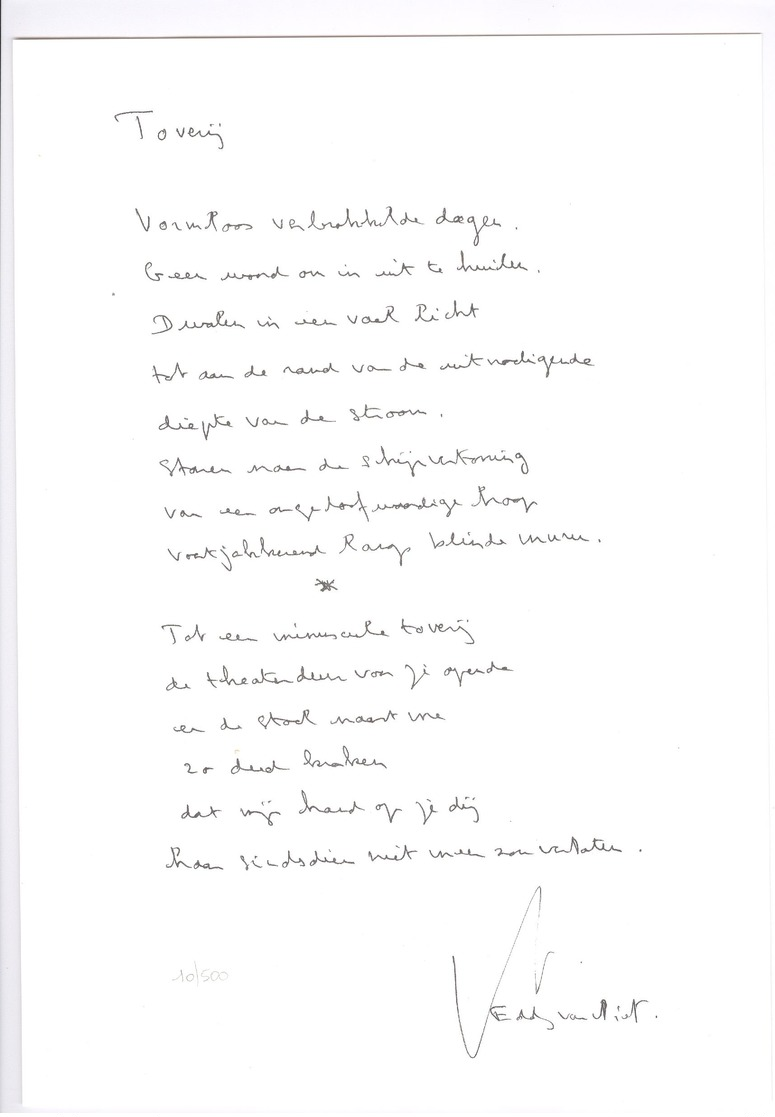 Toverij
Vormloos verbrokkelde dagen.
Geen woord om in uit te huilen.
Dwalen in een vaal licht
tot aan de rand van de uitnodigende
diepte van de stroom.
Staren naar de schijnvertoning
van een ongeloofwaardige hoop
voortjakkerend langs blinde muren.
*
Tot een minuscule toverij
de theaterdeur voor je opende
en de stoel naast me
zo deed kraken
dat mijn hand op je dij
haar sindsdien niet meer zou verlaten.
10/500
Eddy van Vliet.